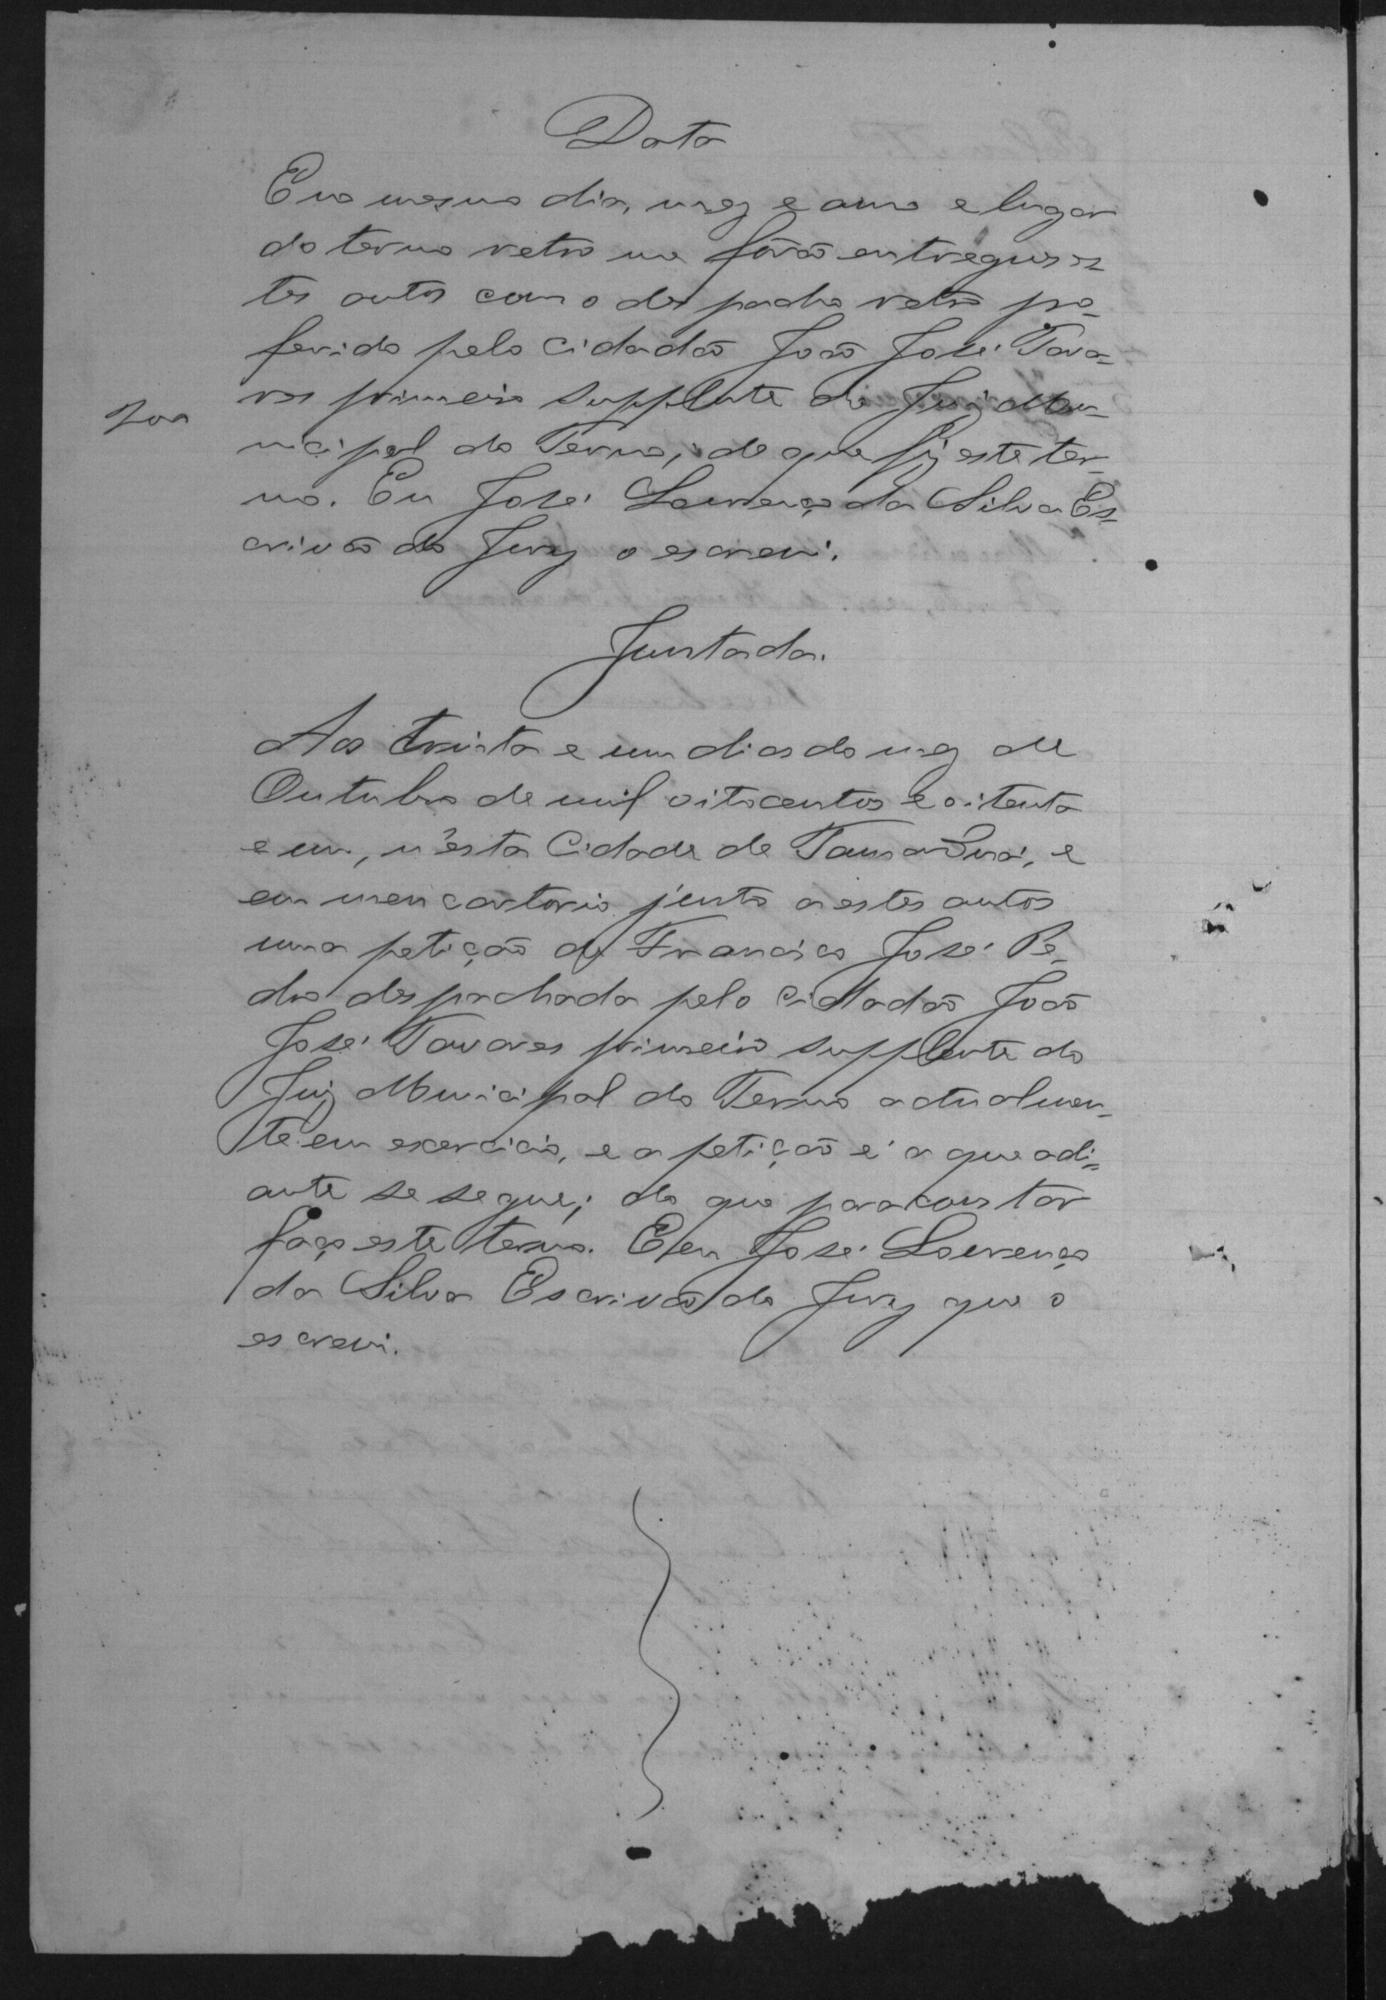 Data
E no mesmo dia, mez e anno e lugar
do termo retro me forão entregues es-
tes autos com o despacho retro pro-
ferido pelo cidadão João José Tava-
res primeiro supplente do Juiz Mu-
nicipal do Termo, de que fiz este ter-
mo. Eu José Lourenço da Silva Es-
crivão do Jury o escrevi.
Juntada.
Aos trinta e um dias do mez de
Outubro de mil oitocentos e oitenta
e um, n'esta Cidade de Tamanduá, e
em meu cartorio junto a estes autos
uma petição de Francisco José Pe-
dro despachada pelo cidadão João
José Tavares primeiro supplente do
Juiz Municipal do Termo actualmen-
te em exercicio, e a petição é a que adi-
ante se segue; do que para constar
faço este termo. E eu José Lourenço
da Silva Escrivão do Jury que o
escrevi.